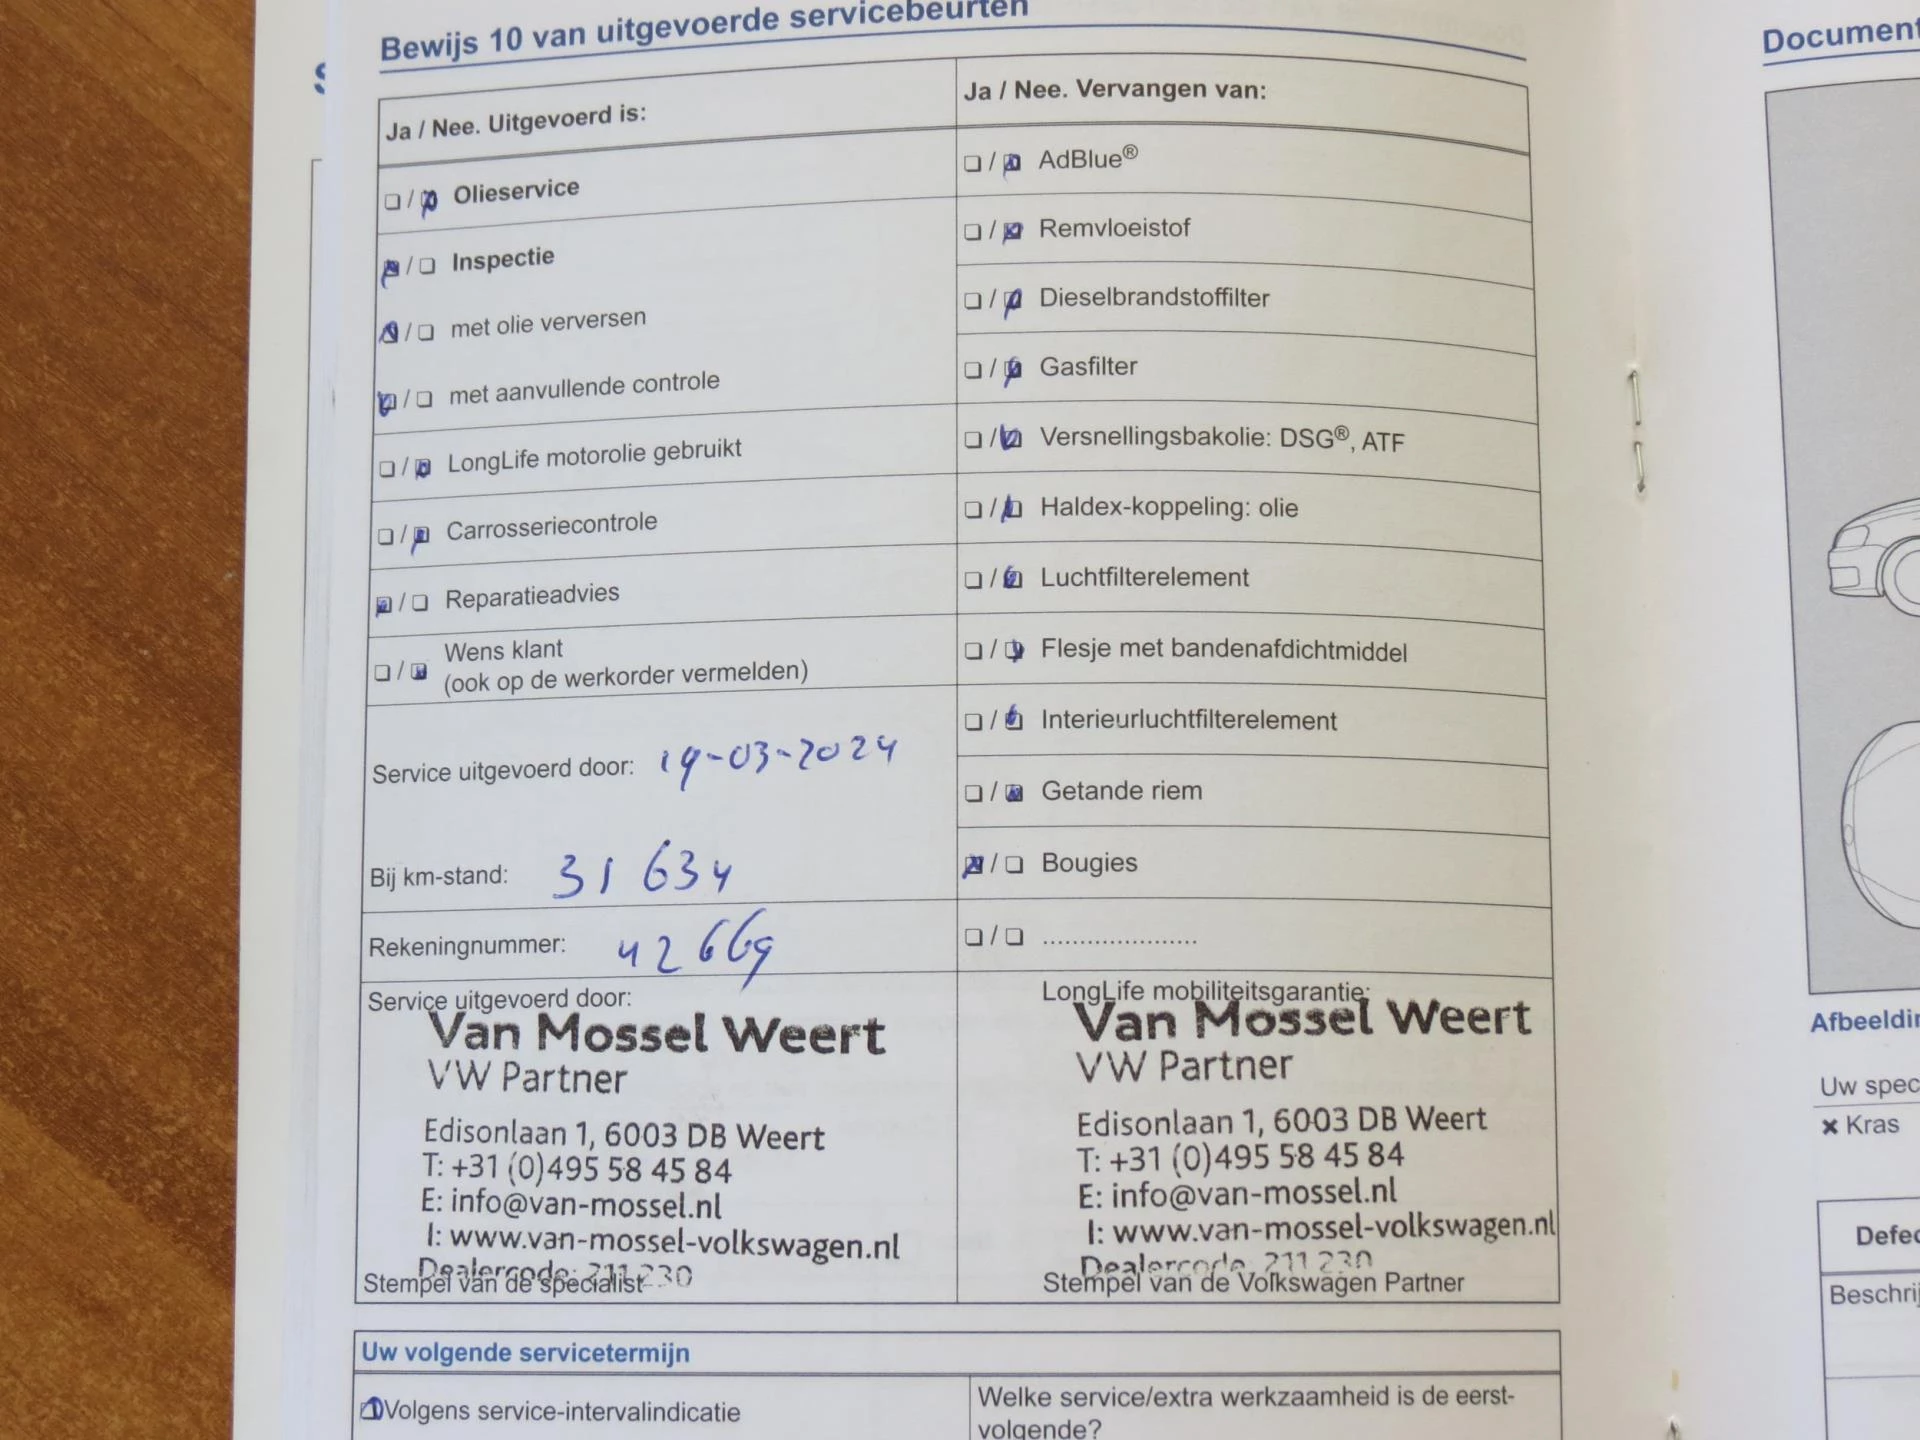 Bewijs 10 van uitgevoerde servicebeurten
Ja / Nee. Uitgevoerd is:
/ Olieservice
/ Inspectie
/ met olie verversen
/ met aanvullende controle
/ LongLife motorolie gebruikt
/ Carrosseriecontrole
/ Reparatieadvies
/ Wens klant
(ook op de werkorder vermelden)
Service uitgevoerd door: 19-03-2024
Bij km-stand: 31 634
Rekeningnummer: 42669
Service uitgevoerd door:
Van Mossel Weert
VW Partner
Edisonlaan 1, 6003 DB Weert
T: +31 (0)495 58 45 84
E: info@van-mossel.nl
I: www.van-mossel-volkswagen.nl
Dealercode: 211 230
Stempel van de specialist
Ja / Nee. Vervangen van:
/ AdBlue®
/ Remvloeistof
/ Dieselbrandstoffilter
/ Gasfilter
/ Versnellingsbakolie: DSG®, ATF
/ Haldex-koppeling: olie
/ Luchtfilterelement
/ Flesje met bandenafdichtmiddel
/ Interieurluchtfilterelement
/ Getande riem
/ Bougies
/ .....................
LongLife mobiliteitsgarantie:
Van Mossel Weert
VW Partner
Edisonlaan 1, 6003 DB Weert
T: +31 (0)495 58 45 84
E: info@van-mossel.nl
I: www.van-mossel-volkswagen.nl
Dealercode: 211 230
Stempel van de Volkswagen Partner
Uw volgende servicetermijn
Volgens service-intervalindicatie
Welke service/extra werkzaamheid is de eerst-
volgende?
Document
Afbeeldin
Uw spec
× Kras
Defec
Beschrij